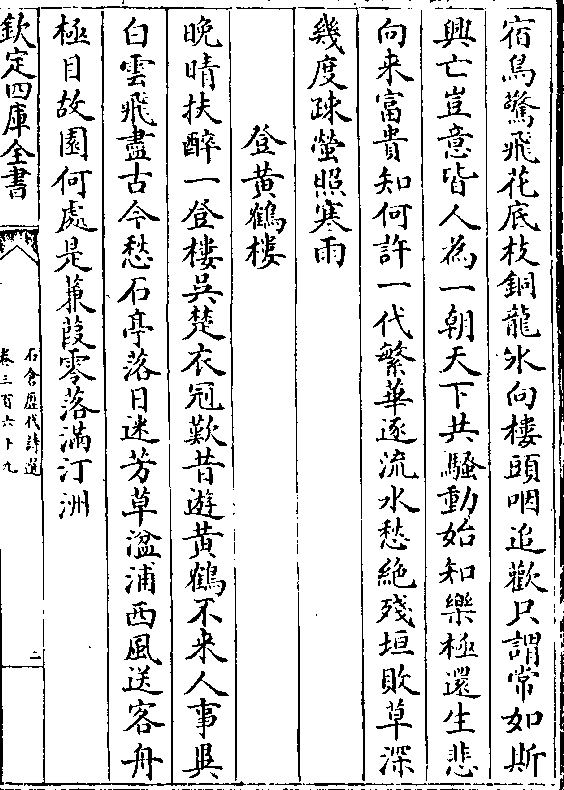 宿鳥驚飛花底枝銅龍水向樓頭咽追歡只謂常如斯
興亡豈意皆人為一朝天下共騷動始知樂極還生悲
向来富貴知何許一代繁華逐流水愁絶殘垣敗草深
幾度疎螢照寒雨
登黄鶴樓
晚晴扶醉一登樓吳楚衣冠歎昔遊黄鶴不来人事異
白雲飛盡古今愁石亭落日迷芳草湓浦西風送客舟
極目故園何處是蒹葭零落滿汀洲
欽定四庫全書
石倉歷代詩選
卷三百六十九
二